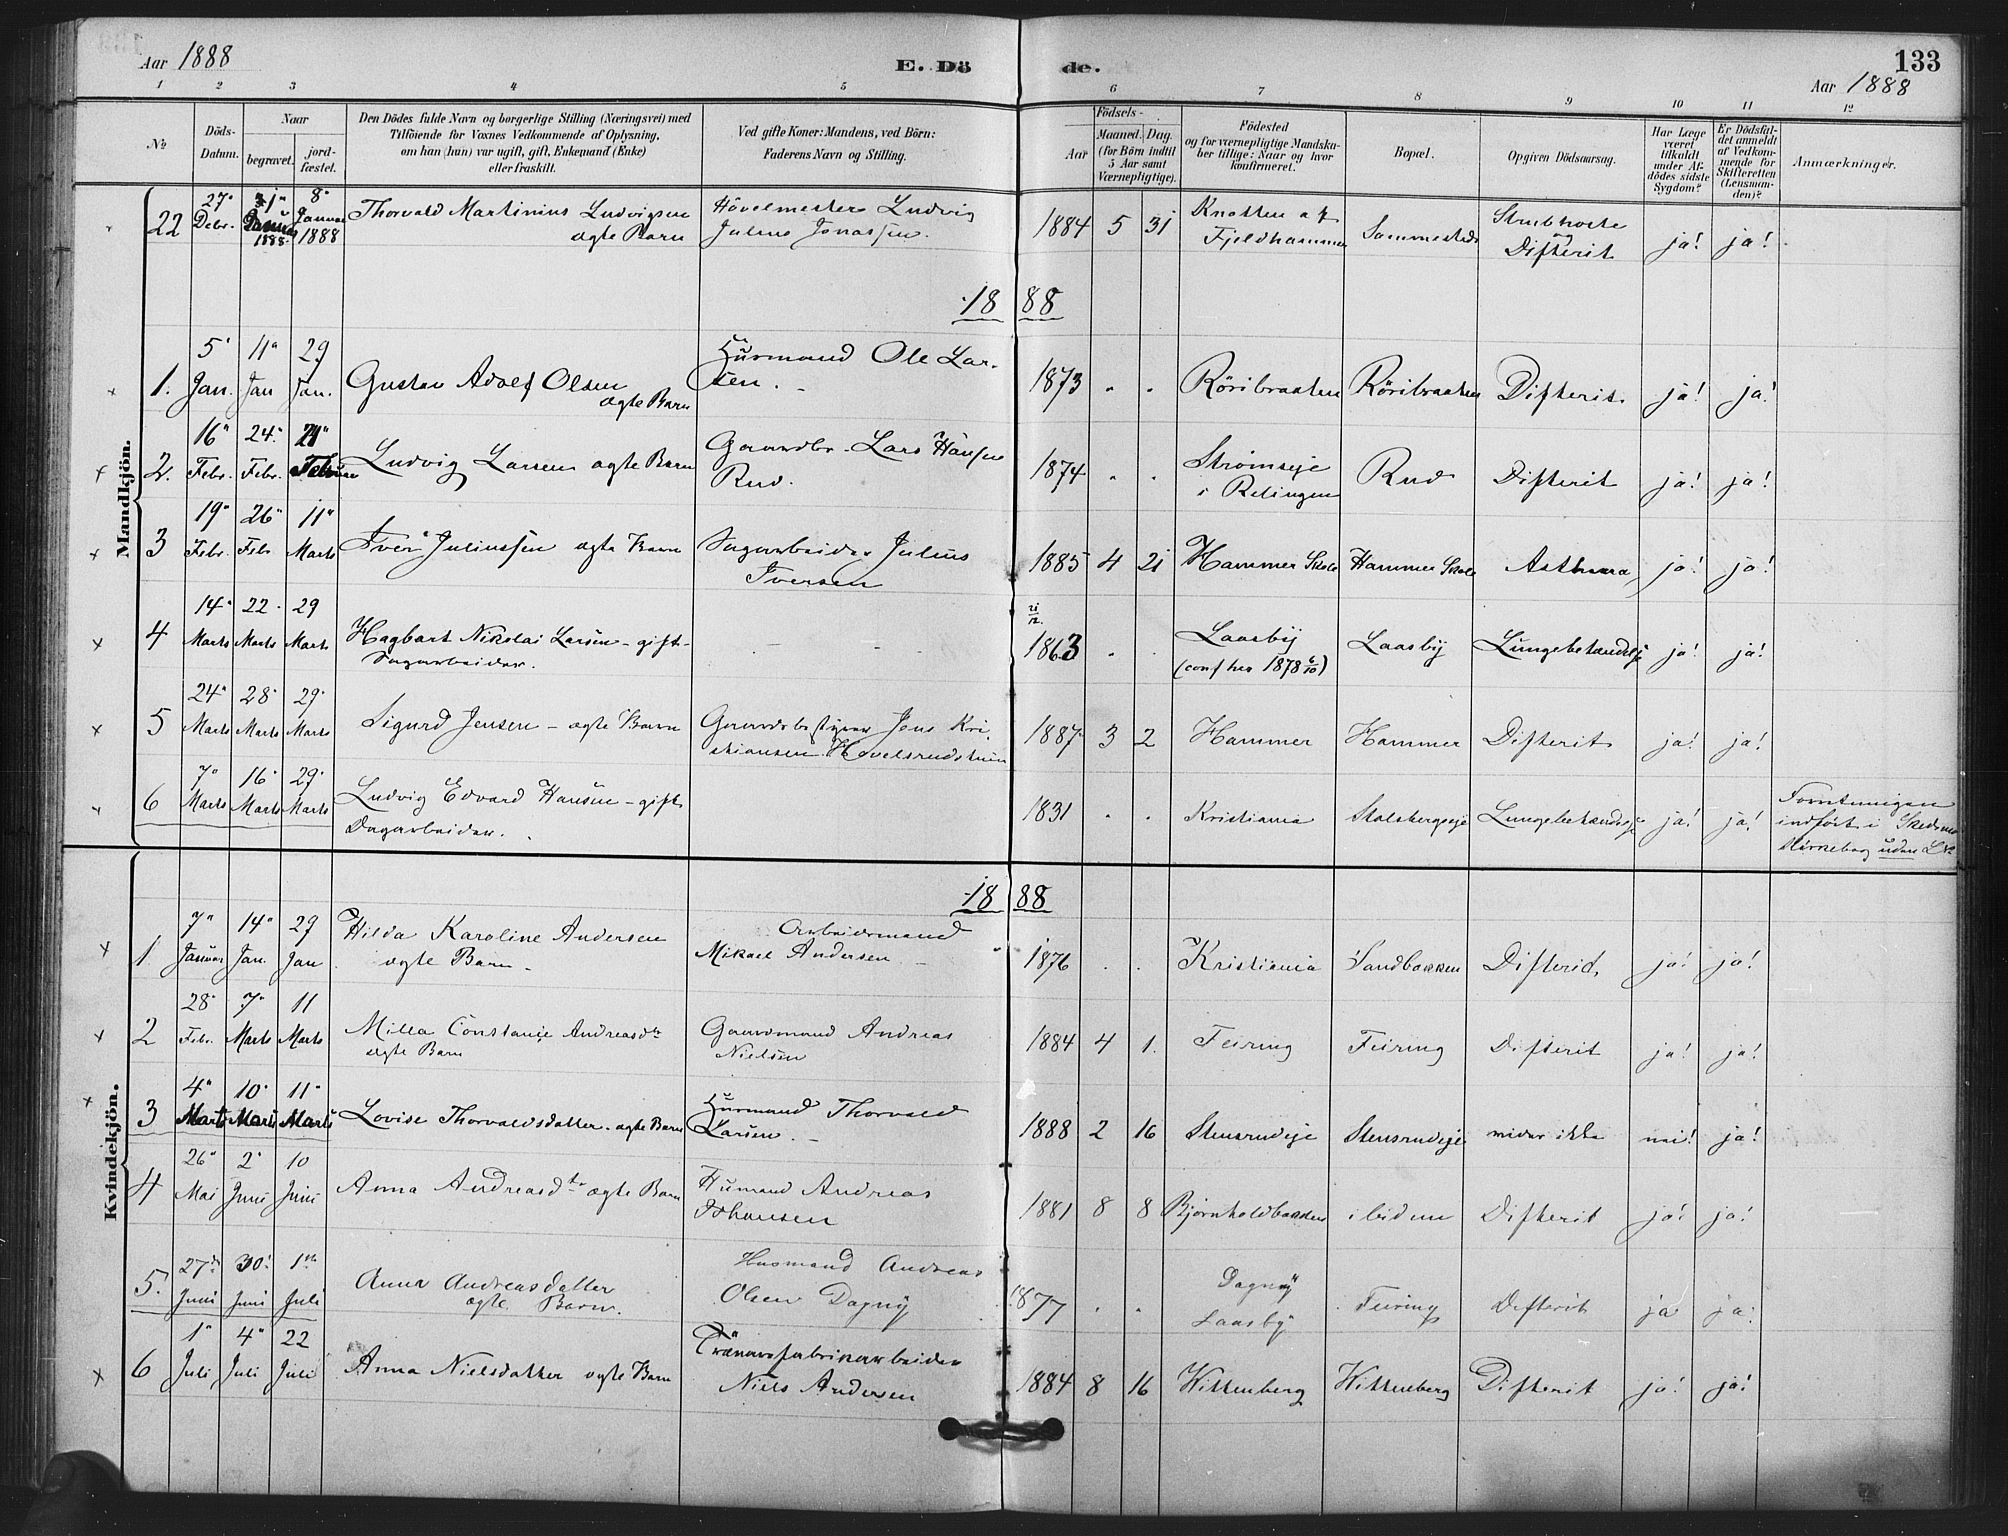 Aar 1888
E. Dö de.
133
Aar 1888
1 2 3 4 5 6 7 8 9 10 11 12
№
Döds-Datum.
Naar
begravet.
jord-fæstet.
Den Dödes fulde Navn og borgerlige Stilling (Næringsvei) med
Tilföiende for Voxnes Vedkommende af Oplysning,
om han (hun) var ugift, gift, Enkemand (Enke)
eller fraskilt.
Ved gifte Koner: Mandens, ved Börn:
Faderens Navn og Stilling.
Födsels-
Aar
Maaned. Dag.
(for Börn indtil
5 Aar samt
Værnepligtige).
Födested
og for værnepligtige Mandska-
ber tillige: Naar og hvor
konfirmeret.
Bopæl.
Opgiven Dödsaarsag.
Har Læge
været
tilkaldt
under Af-
dödes sidste
Sygdom?
Er Dödsfal-
det anmeldt
af Vedkom-
mende for
Skifteretten
(Lensman-
den)?
Anmærkninger.
Mandkjön.
22 27 Debr. Januar 1888 8 Januar 1888 Thorvald Martinius Ludvigsen ægte Barn Hövelmester Ludvig Julius Jonassen. 1884 5 31 Knatten af Fjeldhammer Sammesteds Strubhoste og Difterit ja! ja!
18 88
1. 5 Jan. 11 Jan 29 Jan. Gustav Adolf Olsen ægte Barn Husmand Ole Larsen. 1873 " " Röribraaten Röribraaten Difterit. ja! ja!
2. 16 Febr. 24 Febr. Februar Ludvig Larsen ægte Barn Gaardbr. Lars Hansen Rud. 1874 " " Strømseje i Relingen Rud Difterit ja! ja!
3 19 Febr. 26 Febr 11 Marts Iver Juliussen ægte Barn Sagarbeider Julius Iversen 1885 4 21 Hammer Skole Hammer Skole Asthma ja! ja!
4 14 Marts 22 Marts 29 Marts Hagbart Nikolai Larsen - gift - Sagarbeider. 21/12 1863 " " Laasby (conf her 1878 6/10) Laasby Lungebetændelse ja! ja!
5 24 Marts 28 Marts 29 Marts Sigurd Jensen - ægte Barn Gaardsbestyrer Jens Kristiansen 1887 3 2 Hammer Hammer Difterit ja! ja!
6 7 Marts 16 Marts 29 Marts Ludvig Edvard Hansen - gift Dagarbeider. 1831 " " Kristiania Stalsbergseje Lungebetændelse ja! ja! indført i Skedsmo Kirkebog uden
18 88
Kvindekjön.
1 7 Januar 14 Jan. 29 Jan Hilda Karoline Andersen ægte Barn - Arbeidsmand Mikael Andersen 1876 " " Kristiania Sandbakken Difterit, ja! ja!
2 28 Febr. 7 Marts 11 Marts Milla Constanse Andreasdtr ægte Barn Gaardmand Andreas Nielsen 1884 4 1. Feiring Feiring Difterit ja! ja!
3 4 Marts 10 Marts 11 Marts Lovise Thorvaldsdatter. ægte Barn Husmand Thorvald Larsen. - 1888 2 16 Stensrudeje Stensrudeje vides ikke nei! ja!
4 26 Mai 2 Juni 10 Juni Anna Andreasdtr ægte Barn Husmand Andreas Johansen 1881 8 8 Bjørnholdbakken ibidem Difterit ja! ja!
5. 27de Juni 30 Juni 1ste Juli Anna Andreasdatter ægte Barn. Husmand Andreas Olsen Dagny 1877 " " Dagny Laasby Feiring Difterit ja ja!
6 1 Juli 4 Juli 22 Juli Anna Nielsdatter ægte Barn Trævarefabrikarbeider Niels Andersen 1884 8 16 Wittenberg Wittenberg Difterit ja! ja!